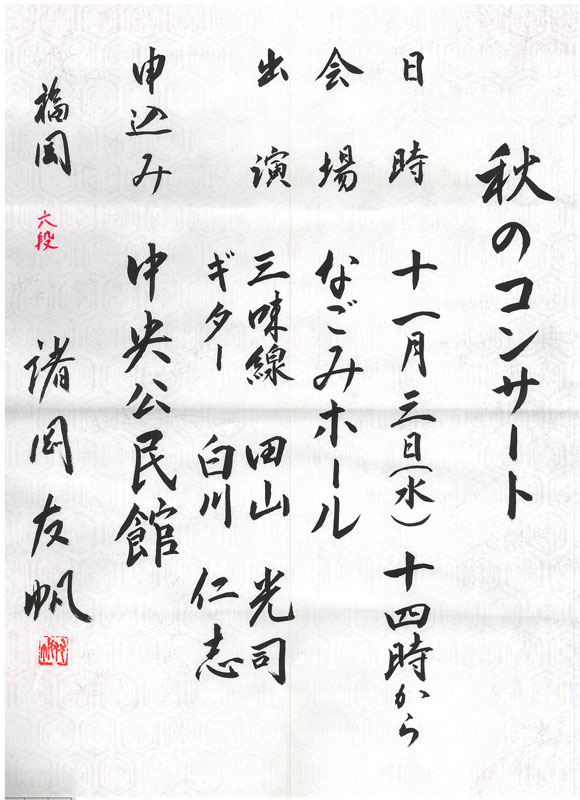 秋のコンサート
日時 十一月三日(水) 十四時から
会場 なごみホール
出演 三味線 田山 光司
ギター 白川 仁志
申込み 中央公民館
福岡 六段 諸岡友帆